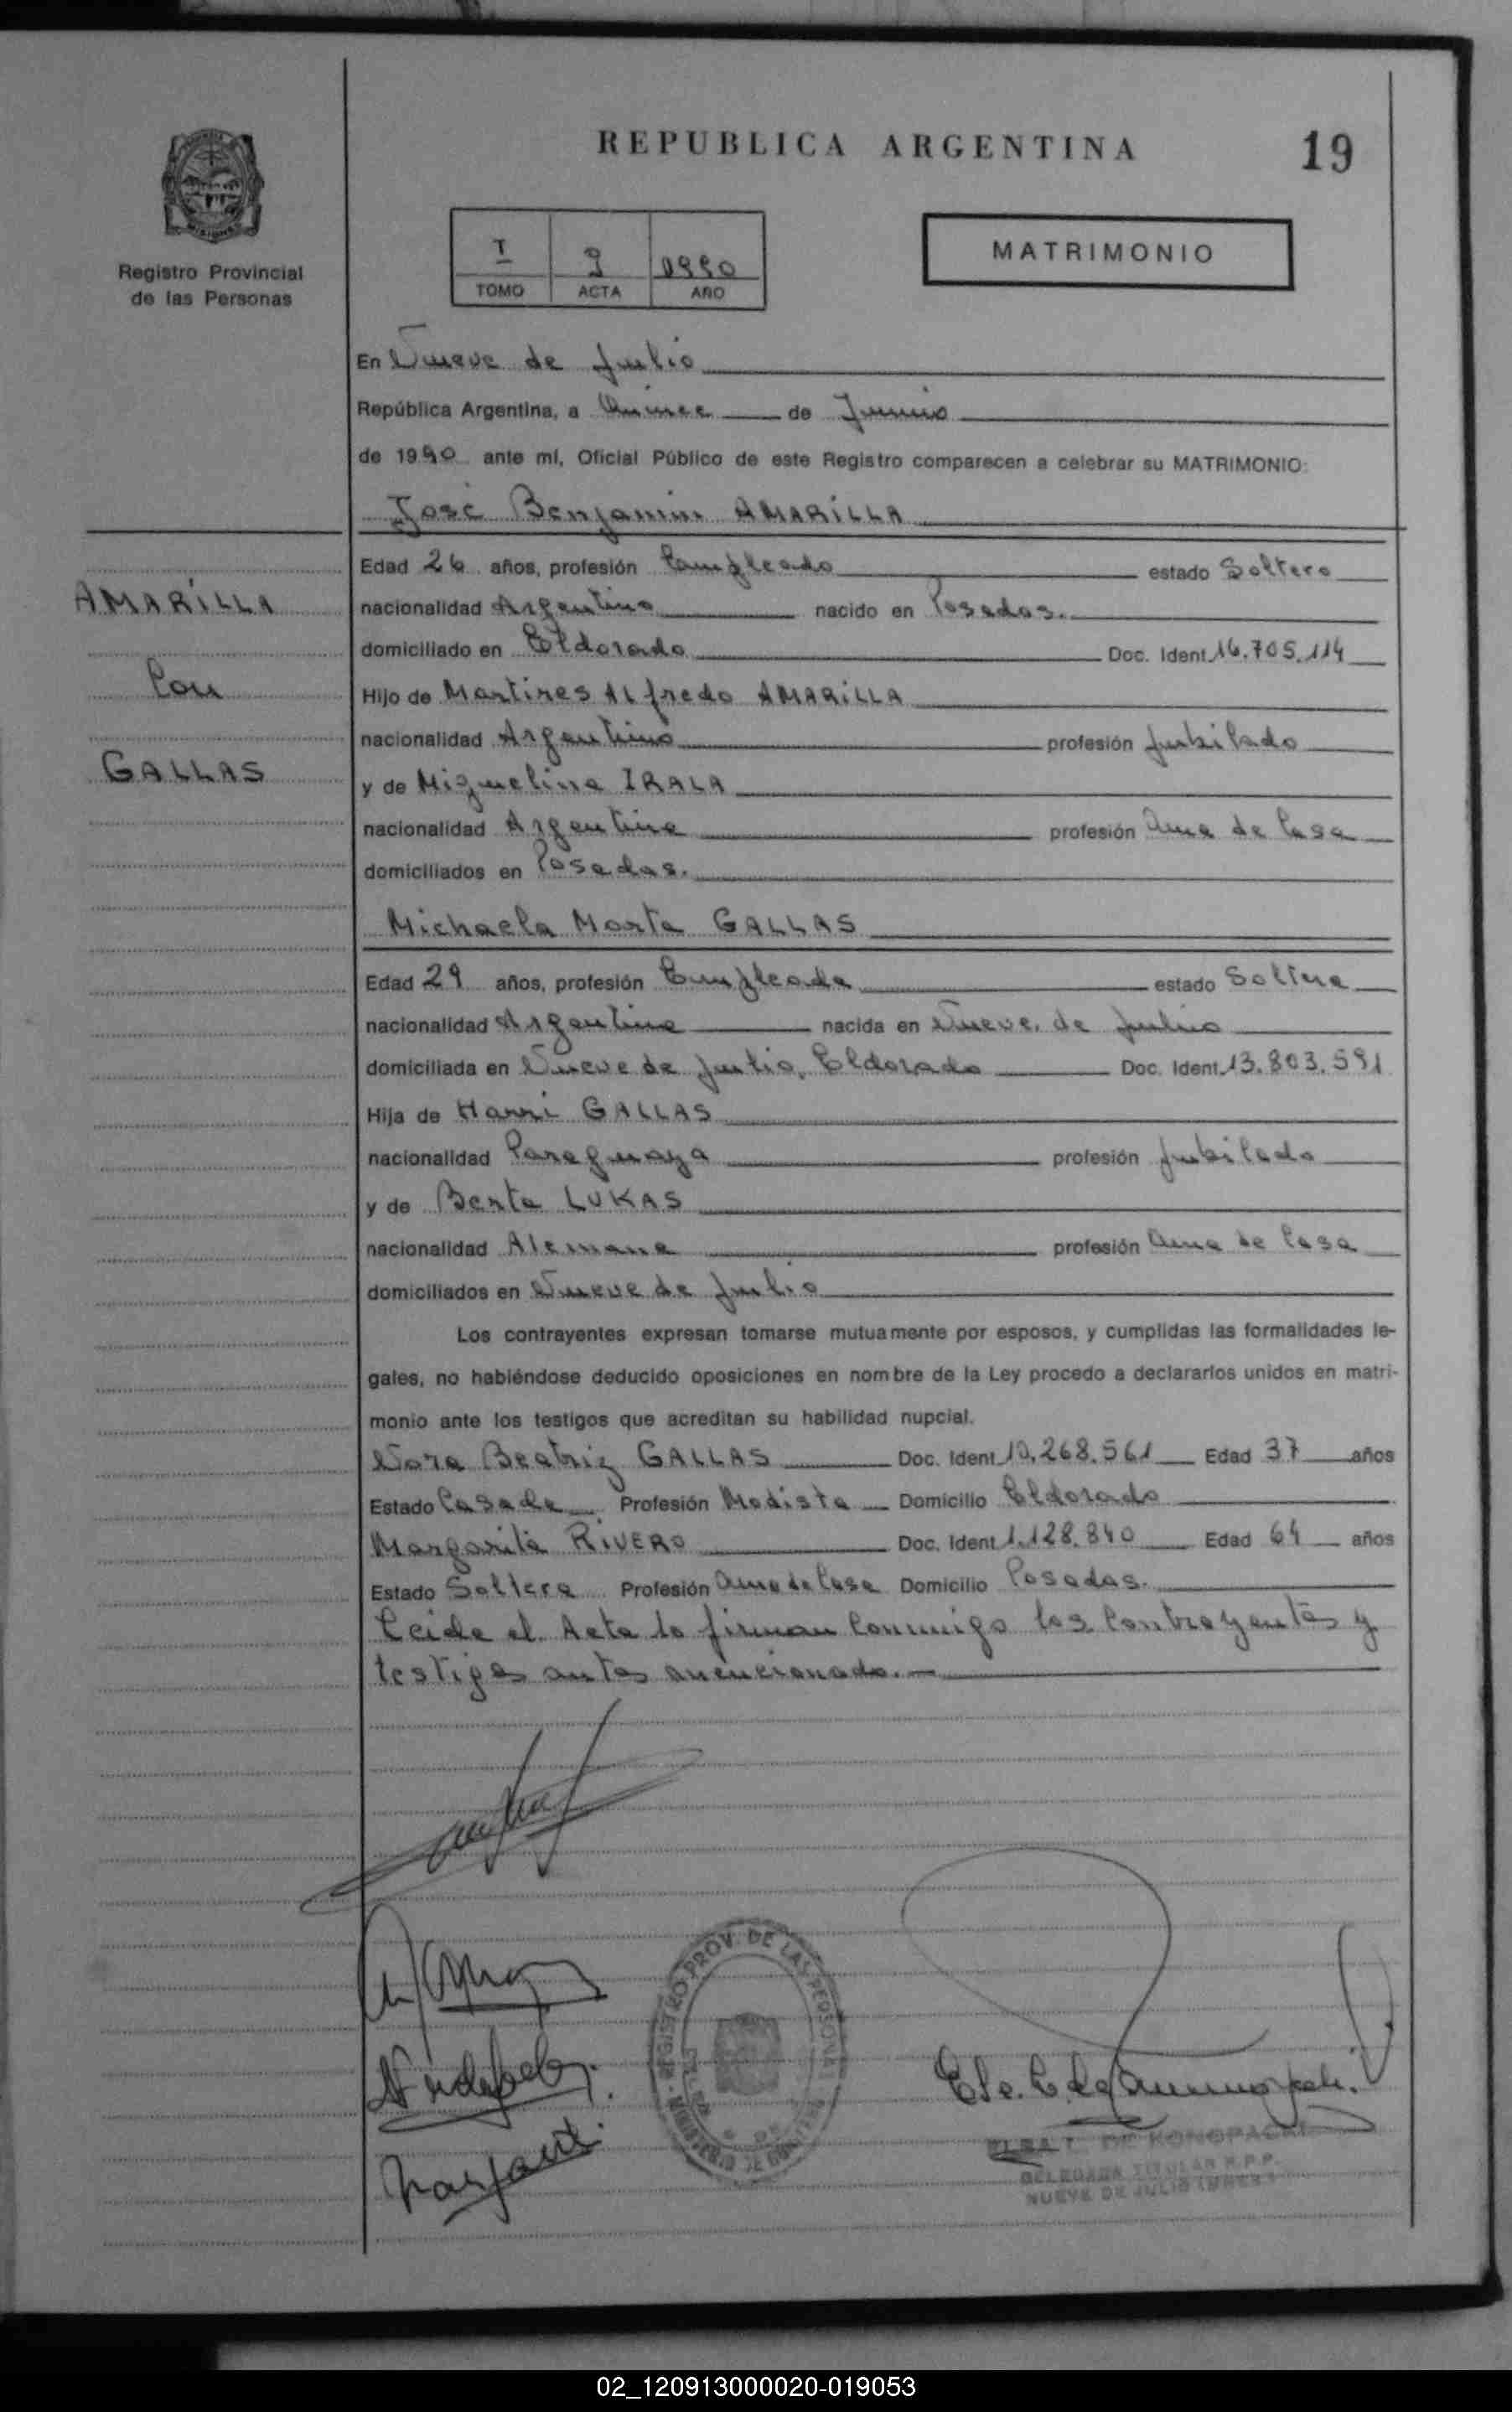 REPUBLICA ARGENTINA
19
Registro Provincial
de las Personas
I 9 1990
TOMO ACTA AÑO
MATRIMONIO
En Nueve de Julio
República Argentina, a Quince de Junio
de 1990 ante mí, Oficial Público de este Registro comparecen a celebrar su MATRIMONIO:
José Benjamin AMARILLA
AMARILLA
Con
GALLAS
Edad 26 años, profesión Empleado estado Soltero
nacionalidad Argentino nacido en Posadas.
domiciliado en Eldorado Doc. Ident. 16.705.114
Hijo de Martires Alfredo AMARILLA
nacionalidad Argentino profesión Jubilado
y de Miguelina IRALA
nacionalidad Argentina profesión Ama de Casa
domiciliados en Posadas.
Michaela Marta GALLAS
Edad 29 años, profesión Empleada estado Soltera
nacionalidad Argentina nacida en Nueve de Julio
domiciliada en Nueve de Julio, Eldorado Doc. Ident. 13.803.591
Hija de Harri GALLAS
nacionalidad Paraguaya profesión Jubilado
y de Berta LUKAS
nacionalidad Alemana profesión Ama de Casa
domiciliados en Nueve de Julio
Los contrayentes expresan tomarse mutuamente por esposos, y cumplidas las formalidades le-
gales, no habiéndose deducido oposiciones en nombre de la Ley procedo a declararlos unidos en matri-
monio ante los testigos que acreditan su habilidad nupcial.
Nora Beatriz GALLAS Doc. Ident. 10.268.561 Edad 37 años
Estado Casada Profesión Modista Domicilio Eldorado
Margarita RIVERO Doc. Ident. 1.128.840 Edad 64 años
Estado Soltera Profesión Ama de Casa Domicilio Posadas.
Leida el Acta lo firman Conmigo los Contrayentes y
testigos antes mencionado.
REGISTRO PROV. DE LAS PERSONAS
MINISTERIO DE GOBIERNO
ELSA T. DE KONOPACKI
DELEGADA TITULAR R.P.P.
NUEVE DE JULIO (MNES)
02_120913000020-019053